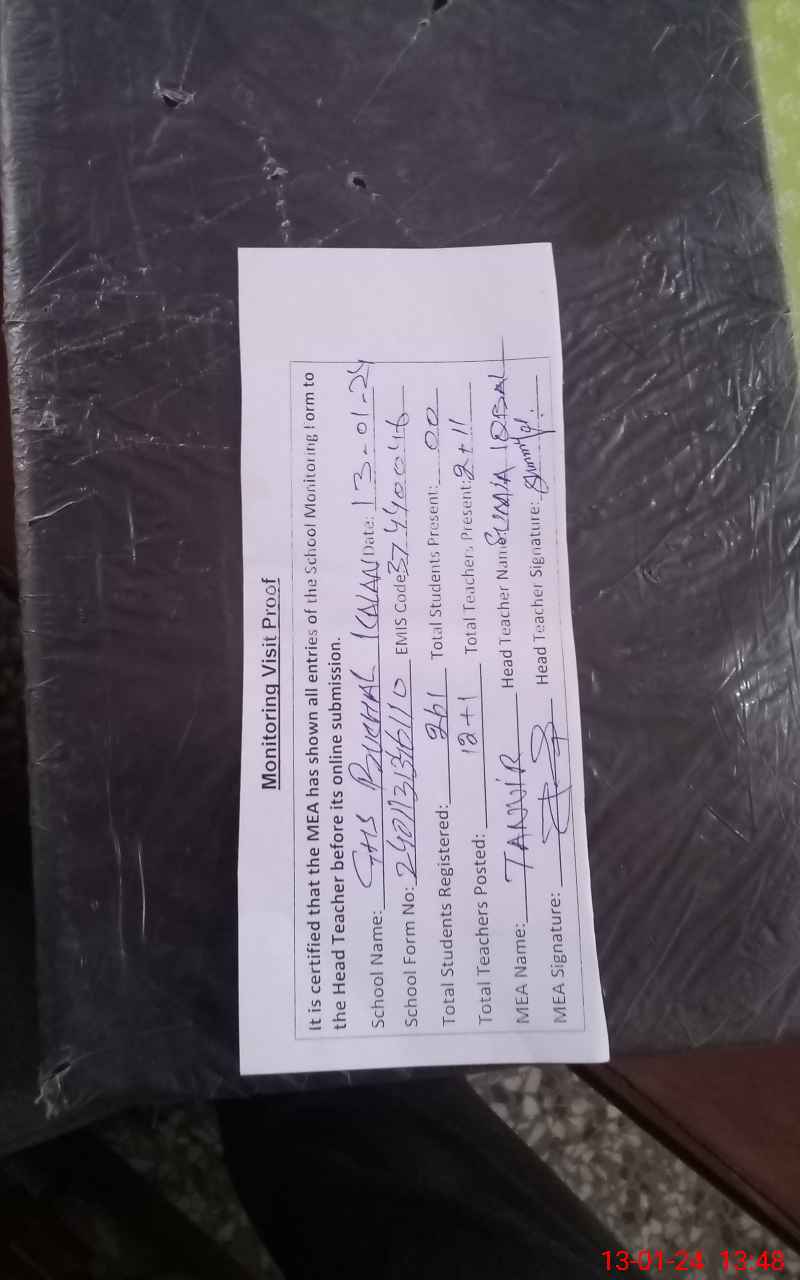 Monitoring Visit Proof
It is certified that the MEA has shown all entries of the School Monitoring Form to
the Head Teacher before its online submission.
School Name: GHS BUKHAL KALAN Date: 13-01-24
School Form No: 2401131346110 EMIS Code 37440046
Total Students Registered: 261 Total Students Present: 00
Total Teachers Posted: 12+1 Total Teachers Present: 2+11
MEA Name: TANVIR Head Teacher Name SUMIA IQBAL
MEA Signature: Head Teacher Signature:
13-01-24 13:48